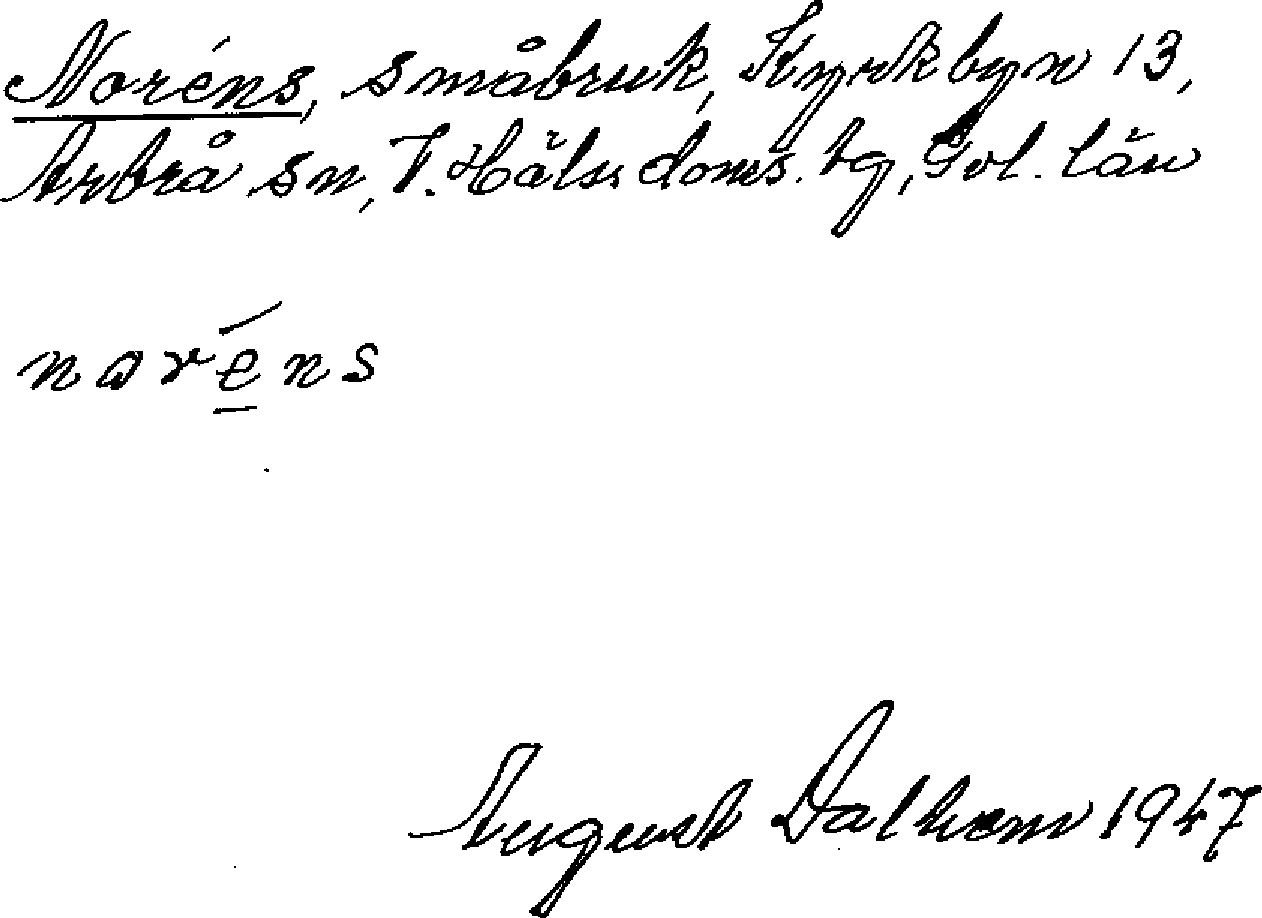 Noréns, småbruk, Kyrkbyn 13,
Arbrå sn, V. Häls. doms. tg, Gvl. län
noréns
August Dalhem 1947